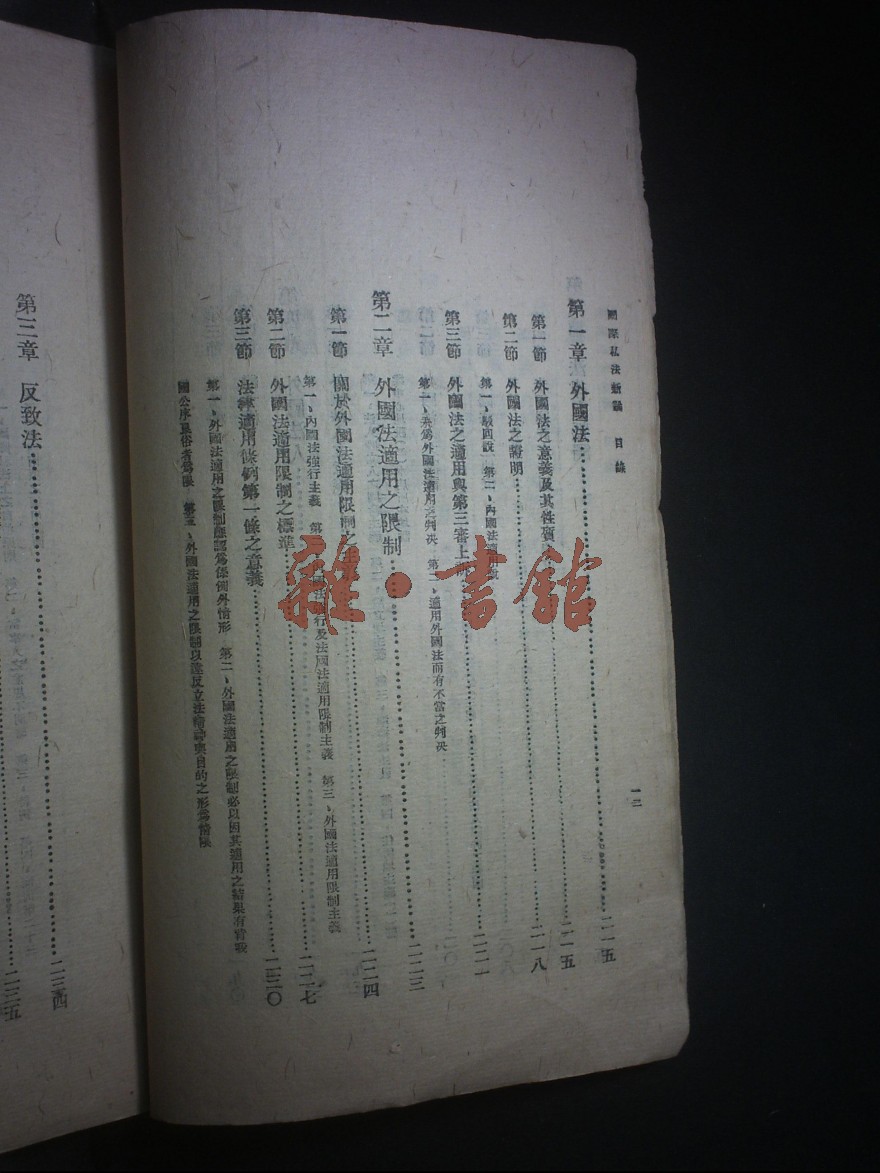 國際私法新論　目錄
一二
第一章　外國法……二一五
第一節　外國法之意義及其性質……二一五
第二節　外國法之證明……二一八
第一、　第二、內國法適用說
第三節　外國法之適用與第三審上……二二一
第一、未爲外國法適用之判決　第二、適用外國法而有不當之判決
二二三
第二章　外國法適用之限制……二二四
第一節　關於外國法適用限制之……二二七
第一、內國法強行主義　第二、內國法強行及法國法適用限制主義　第三、外國法適用限制主義
第二節　外國法適用限制之標準……二三〇
第三節　法律適用條例第一條之意義
第一、外國法適用之限制應認爲係例外情形　第二、外國法適用之限制必以因其適用之結果有背我
國公序良俗者爲限　第三、外國法適用之限制以違反立法精神與目的之
二三四
第三章　反致法……二三五
雜·書館